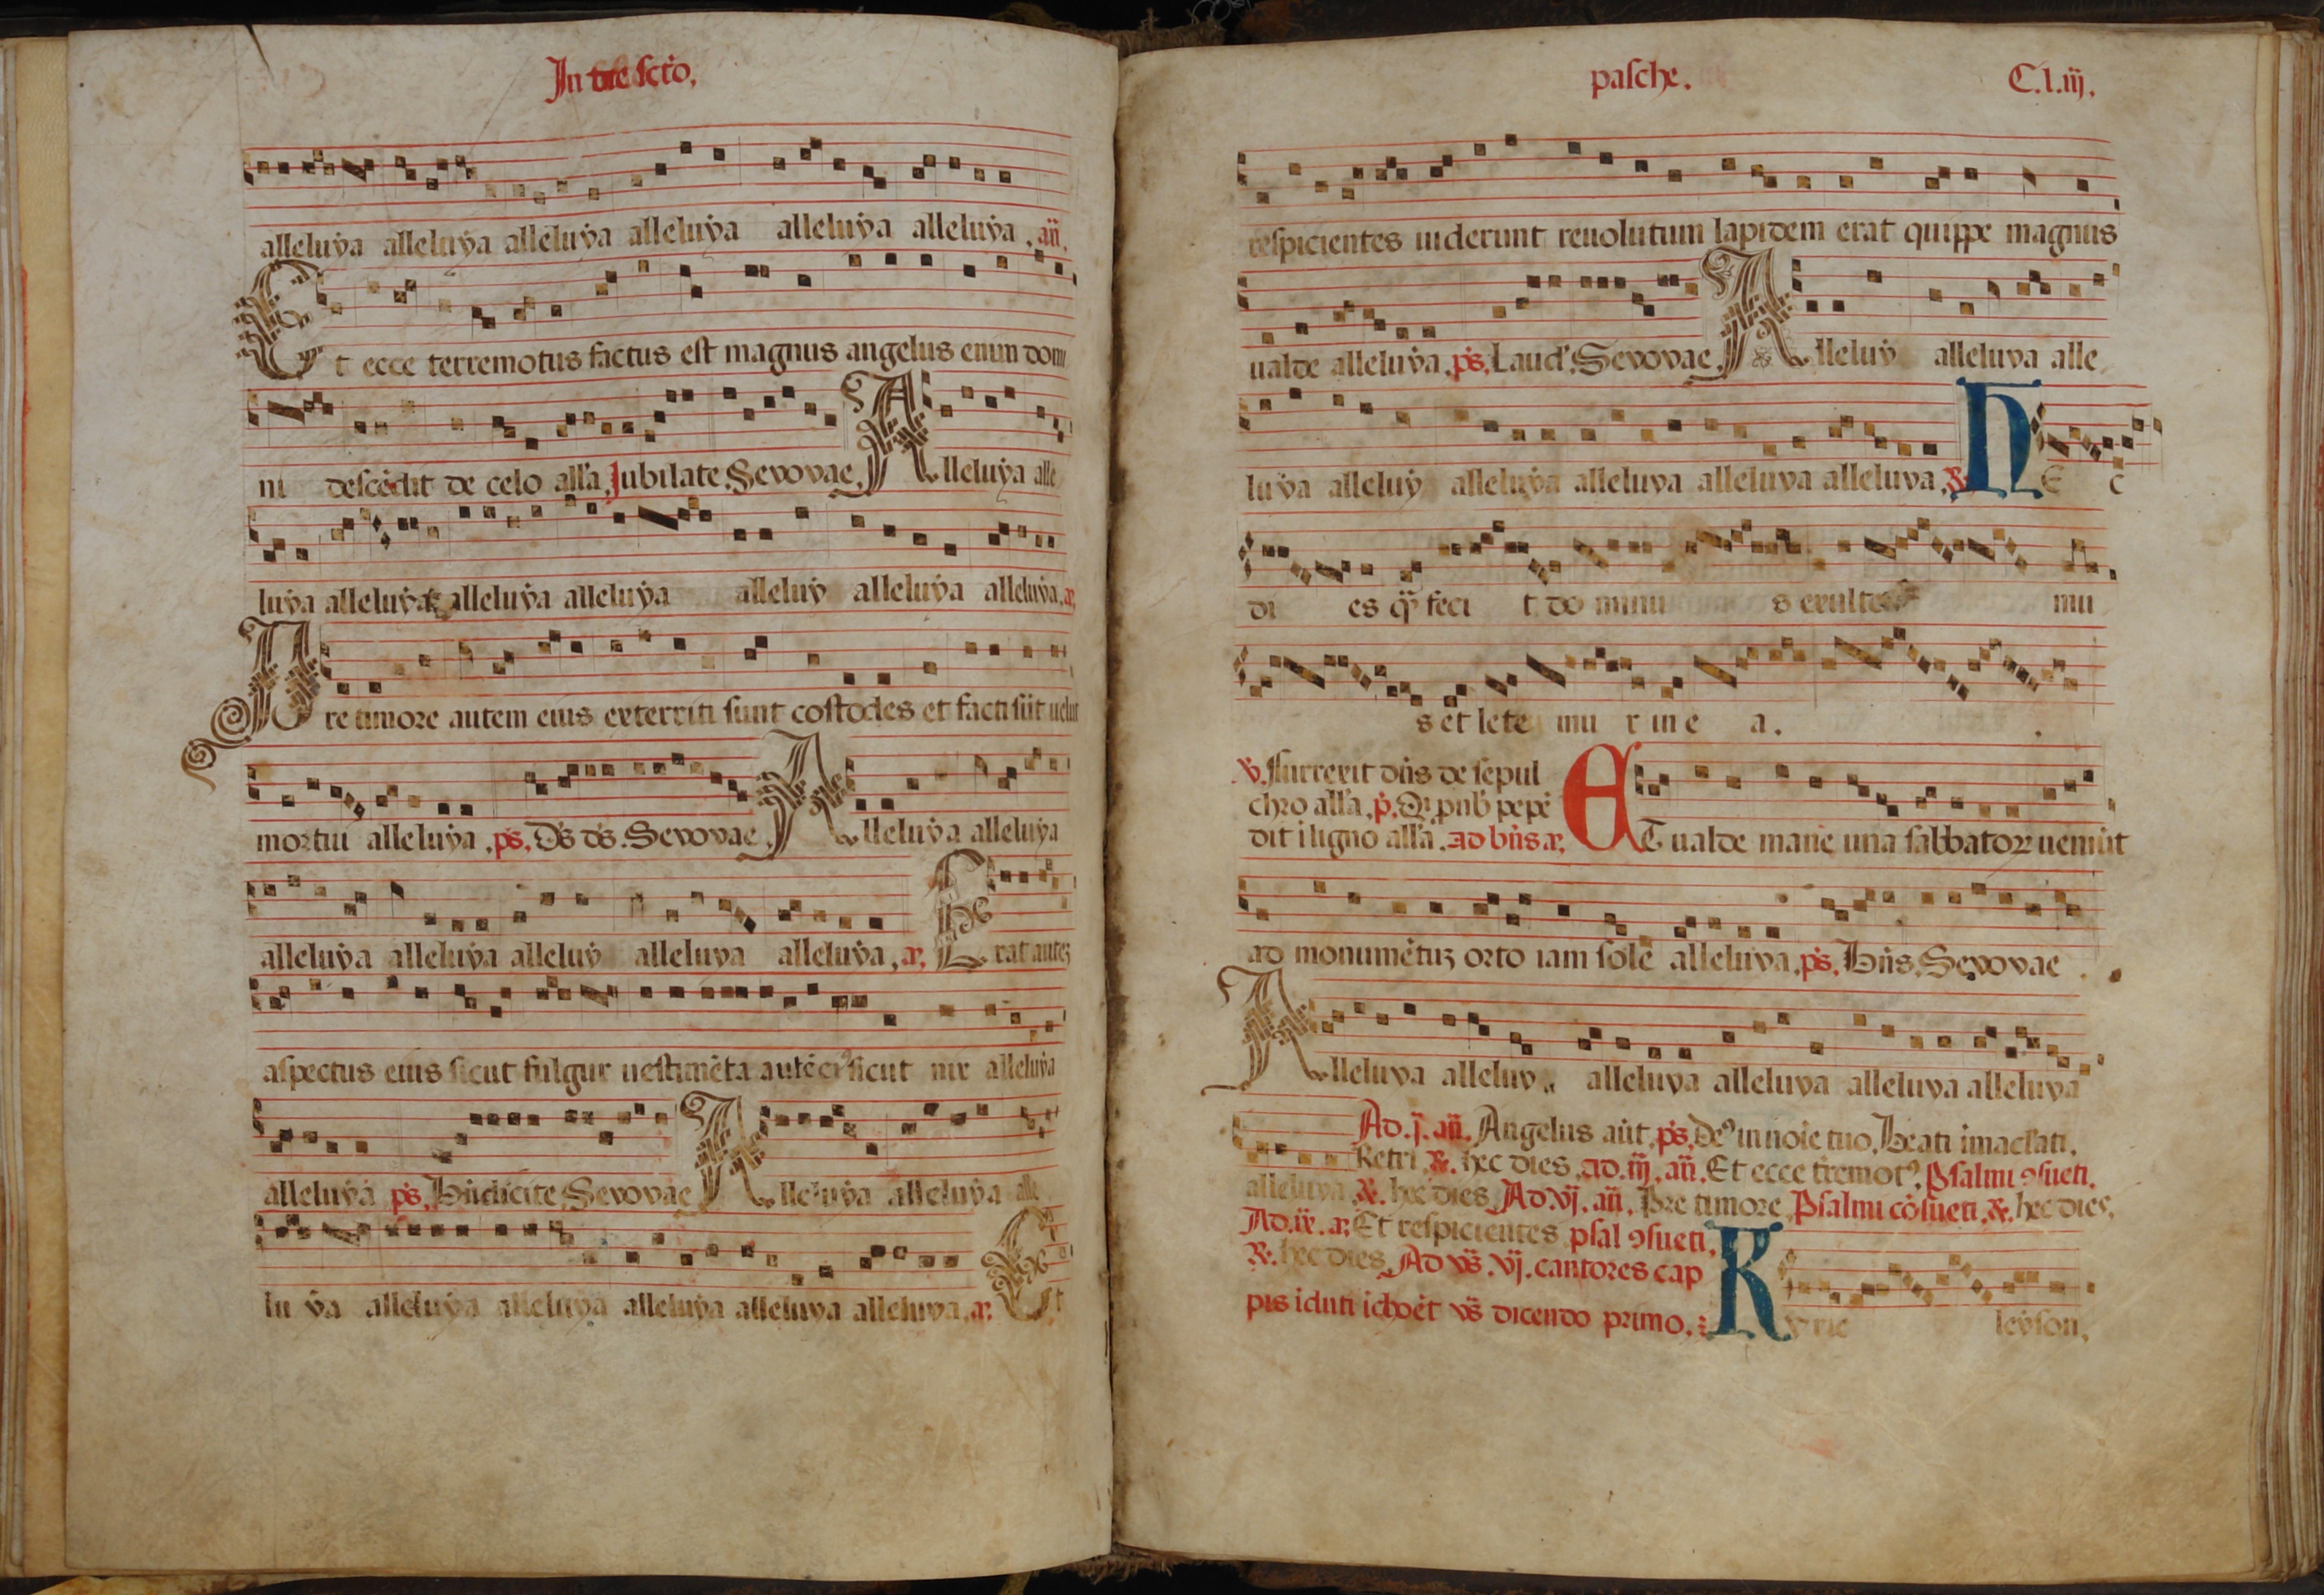 In die scto.
alleluẏa alleluẏa alleluẏa alleluẏa alleluẏa alleluẏa. añ.
Et ecce terremotus factus est magnus angelus enim domi
ni descēdit de celo all'a. Jubilate. Sevovae. Alleluẏa alle
luẏa alleluẏa alleluẏa alleluẏa alleluẏ alleluẏa alleluẏa. a.
Pre timore autem eius exterriti sunt costodes et facti sūt uelut
mortui alleluẏa. ps. Ds ds. Sevovae. Alleluẏa alleluẏa
alleluẏa alleluẏa alleluẏ alleluẏa alleluẏa. a. Erat autez
aspectus eius sicut fulgur uestimēta autē ei9 sicut nix alleluẏa
alleluẏa ps. Bndicite. Sevovae. Alleluẏa alleluẏa alle
lu ẏa alleluẏa alleluẏa alleluẏa alleluẏa alleluẏa. a. Et
pasche. C.l.iij.
respicientes uiderunt reuolutum lapidem erat quippe magnus
ualde alleluẏa. ps. Laud'. Sevovae. Alleluẏ alleluẏa alle
luẏa alleluẏ alleluẏa alleluẏa alleluẏa alleluẏa. ℟. HE C
di es q̄ feci t do minu s exulte mu
s et lete mu r in e a.
℣. Surrexit dn̄s de sepul
chro all'a. p. Qi pnb' pepē
dit i ligno all'a. ad bn̄s a. ET ualde mane una sabbatoꝝ ueniūt
ad monumētuz orto iam sole alleluẏa. ps. Bn̄s. Sevovae.
Alleluẏa alleluẏ alleluẏa alleluẏa alleluẏa alleluẏa
Ad .j. añ. Angelus aūt. ps. De9 in noīe tuo. Beati imaclati.
Retri. ℟. hec dies. ad .iij. añ. Et ecce tremot9. Psalmi 9sueti.
alleluẏa. ℟. hec dies. Ad .vj. añ. Pre timore. Psalmi cōsueti. ℟. hec dies.
Ad .ix. a. Et respicientes psal 9sueti.
℟. hec dies. Ad vs̄. vj. cantores cap
pis iduti ichoēt vs̄ dicendo primo. Kẏrie leẏson.